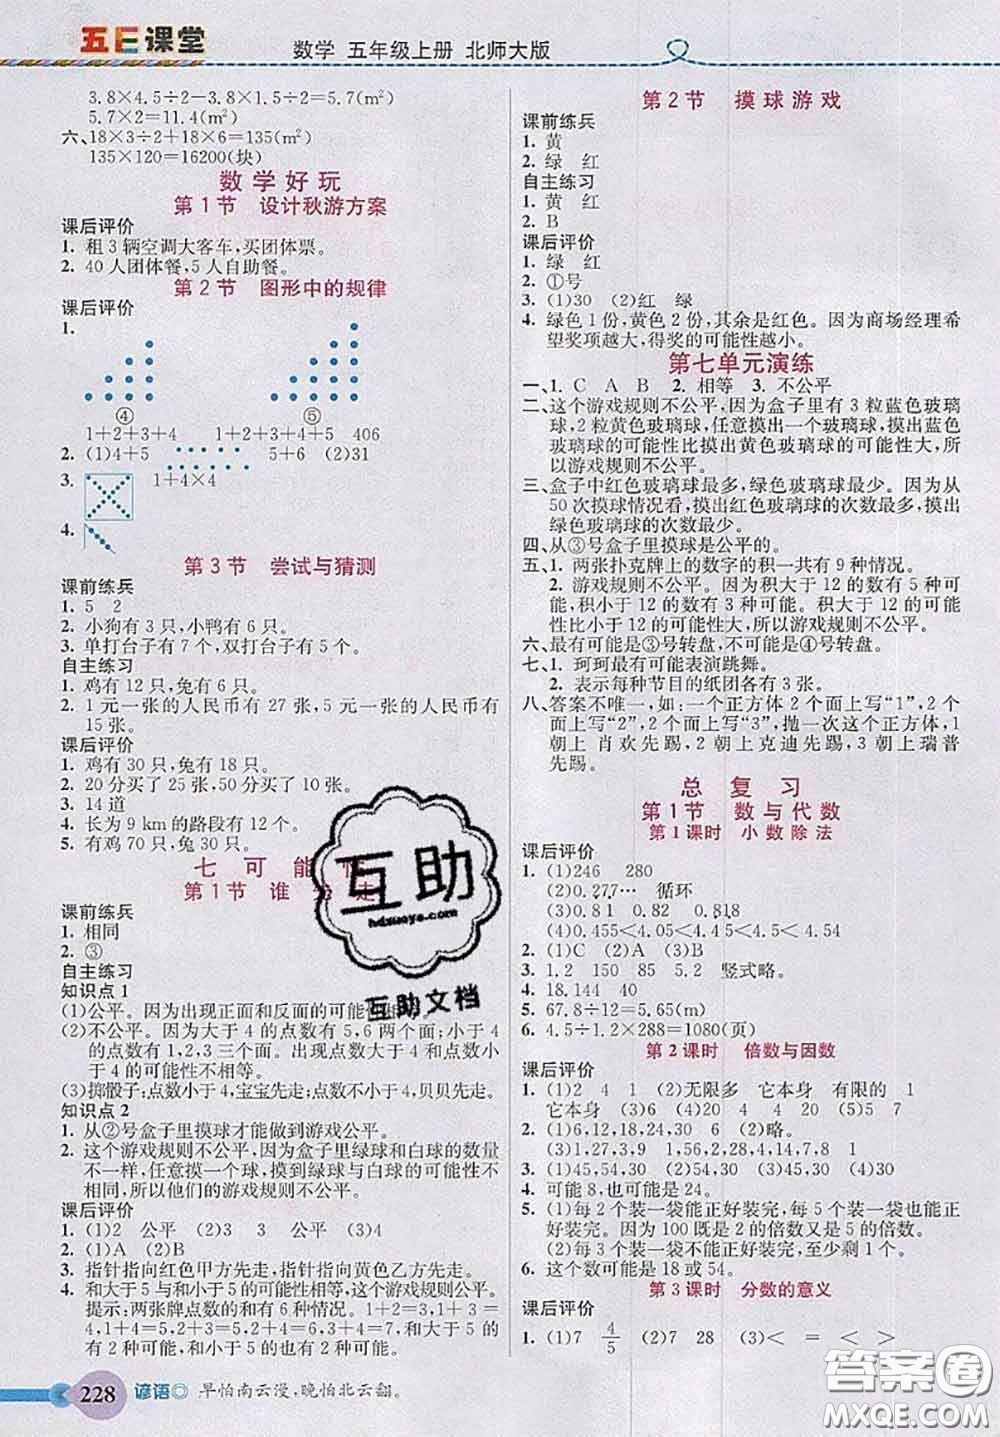 五E课堂
数学 五年级上册 北师大版
3.8×4.5÷2-3.8×1.5÷2=5.7(m²)
5.7×2=11.4(m²)
六、18×3÷2+18×6=135(m²)
135×120=16200(块)
数学好玩
第1节 设计秋游方案
课后评价
1. 租3辆空调大客车,买团体票。
2. 40人团体餐,5人自助餐。
第2节 图形中的规律
课后评价
1.
④ ⑤
1+2+3+4 1+2+3+4+5 406
2. (1)4+5 5+6 (2)31
3. 1+4×4
4.
第3节 尝试与猜测
课前练兵
1. 5 2
2. 小狗有3只,小鸭有6只。
3. 单打台子有7个,双打台子有5个。
自主练习
1. 鸡有12只,兔有6只。
2. 1元一张的人民币有27张,5元一张的人民币有
15张。
课后评价
1. 鸡有30只,兔有18只。
2. 20分买了25张,50分买了10张。
3. 14道
4. 长为9 km的路段有12个。
5. 有鸡70只,兔30只。
七 可能
第1节 谁
课前练兵
1. 相同
2. ③
自主练习
知识点1
(1)公平。因为出现正面和反面的可能性
(2)不公平。因为大于4的点数有5,6两个面;小于4
的点数有1,2,3三个面。出现点数大于4和小于
4的可能性不相等。
(3)掷骰子;点数小于4,宝宝先走;点数大于4,贝贝先走。
知识点2
1. 从②号盒子里摸球才能做到游戏公平。
2. 这个游戏规则不公平,因为盒子里绿球和白球的数量
不一样,任意摸一个球,摸到绿球与白球的可能性不
相同,所以他们的游戏规则不公平。
课后评价
1. (1)2 公平 (2)3 3 公平 (3)4
2. (1)A (2)B
3. 指针指向红色甲方先走,指针指向黄色乙方先走。
4. 和大于5与和小于5的可能性相等,这个游戏规则公平。
提示:两张牌点数的和有6种情况。1+2=3,1+3=
4,1+4=5,2+3=5,2+4=6,3+4=7,和大于5的
有2种可能,和小于5的也有2种可能。
228 谚语◎ 早怕南云漫,晚怕北云翻。
第2节 摸球游戏
课前练兵
1. 黄
2. 绿 红
自主练习
1. 黄 红
2. B
课后评价
1. 绿 红
2. ①号
3. (1)30 (2)红 绿
4. 绿色1份,黄色2份,其余是红色。因为商场经理希
望奖项越大,得奖的可能性越小。
第七单元演练
一、1. C A B 2. 相等 3. 不公平
二、这个游戏规则不公平,因为盒子里有3粒蓝色玻璃
球,2粒黄色玻璃球,任意摸出一个玻璃球,摸出蓝
色玻璃球的可能性比摸出黄色玻璃球的可能性大,所
以游戏规则不公平。
三、盒子中红色玻璃球最多,绿色玻璃球最少。因为从
50次摸球情况看,摸出红色玻璃球的次数最多,摸出
绿色玻璃球的次数最少。
四、从③号盒子里摸球是公平的。
五、1. 两张扑克牌上的数字的积一共有9种情况。
2. 游戏规则不公平。因为积大于12的数有5种可
能,积小于12的数有3种可能。积大于12的可能
性比小于12的可能性大,所以游戏规则不公平。
六、最有可能是③号转盘,不可能是④号转盘。
七、1. 珂珂最有可能表演跳舞。
2. 表示每种节目的纸团各有3张。
八、答案不唯一,如:一个正方体2个面上写“1”,2个
面上写“2”,2个面上写“3”,抛一次这个正方体,1
朝上 肖欢先踢,2朝上克迪先踢,3朝上瑞普
先踢。
总复习
第1节 数与代数
第1课时 小数除法
课后评价
1. (1)246 280
(2)0.27̇7… 循环
(3)0.81 0.82 0.818
(4)0.455<4.05<4.5<4.5<4.54
2. (1)C (2)D (3)A (4)B
3. 1.2 150 85 5.2 竖式略。
4. 18.144 40
5. 67.8÷12=5.65(m)
6. 4.5÷1.2×288=1080(页)
第2课时 倍数与因数
课后评价
1. (1)2 4 1 (2)无限多 它本身 有限的 1
它本身 (3)6 4 4 20 4 20
2. (1)6,12,18,24,30 6 (2)略。
(3)1,3,9,27,29 1,56,2,28,4,14,7,8
3. (1)45,54,30 (2)45,30 (3)54,30 (4)30
4. 可能8,也可能是24。
5. (1)每2个装一袋能正好装完,每5个装一袋也能正
好装完。因为100既是2的倍数又是5的倍数。
(2)每3个装一袋不能正好装完,至少剩1个。
6. 这个数可能是18或54。
第3课时 分数的意义
课后评价
1. (1)7 4/5 (2)7 28 (3)< = < >
互助
hdzuoye.com
互助文档
答案圈
MXQE.COM